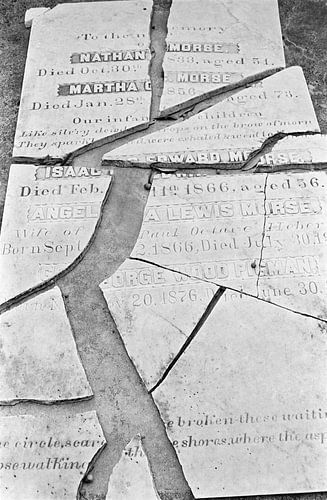 To the memory
NATHAN MORSE
Died Oct. 30th 33, aged 54.
MARTHA C MORSE
Died Jan. 28th 856 aged 73.
Our infant children
Like silv'ry dewdrops on the brow of morn
They sparkl and were exhaled &
ISAAC EDWARD MORSE
Died Feb. 11th 1866, aged 56.
ANGEL A LEWIS MORSE
Wife of Paul Octave
Born Sept 2 1866, Died July 30
GEORGE WOOD
20, 1876, June 30.
e broken these waitin
e circle, scar the shores, where the asp
ose walking